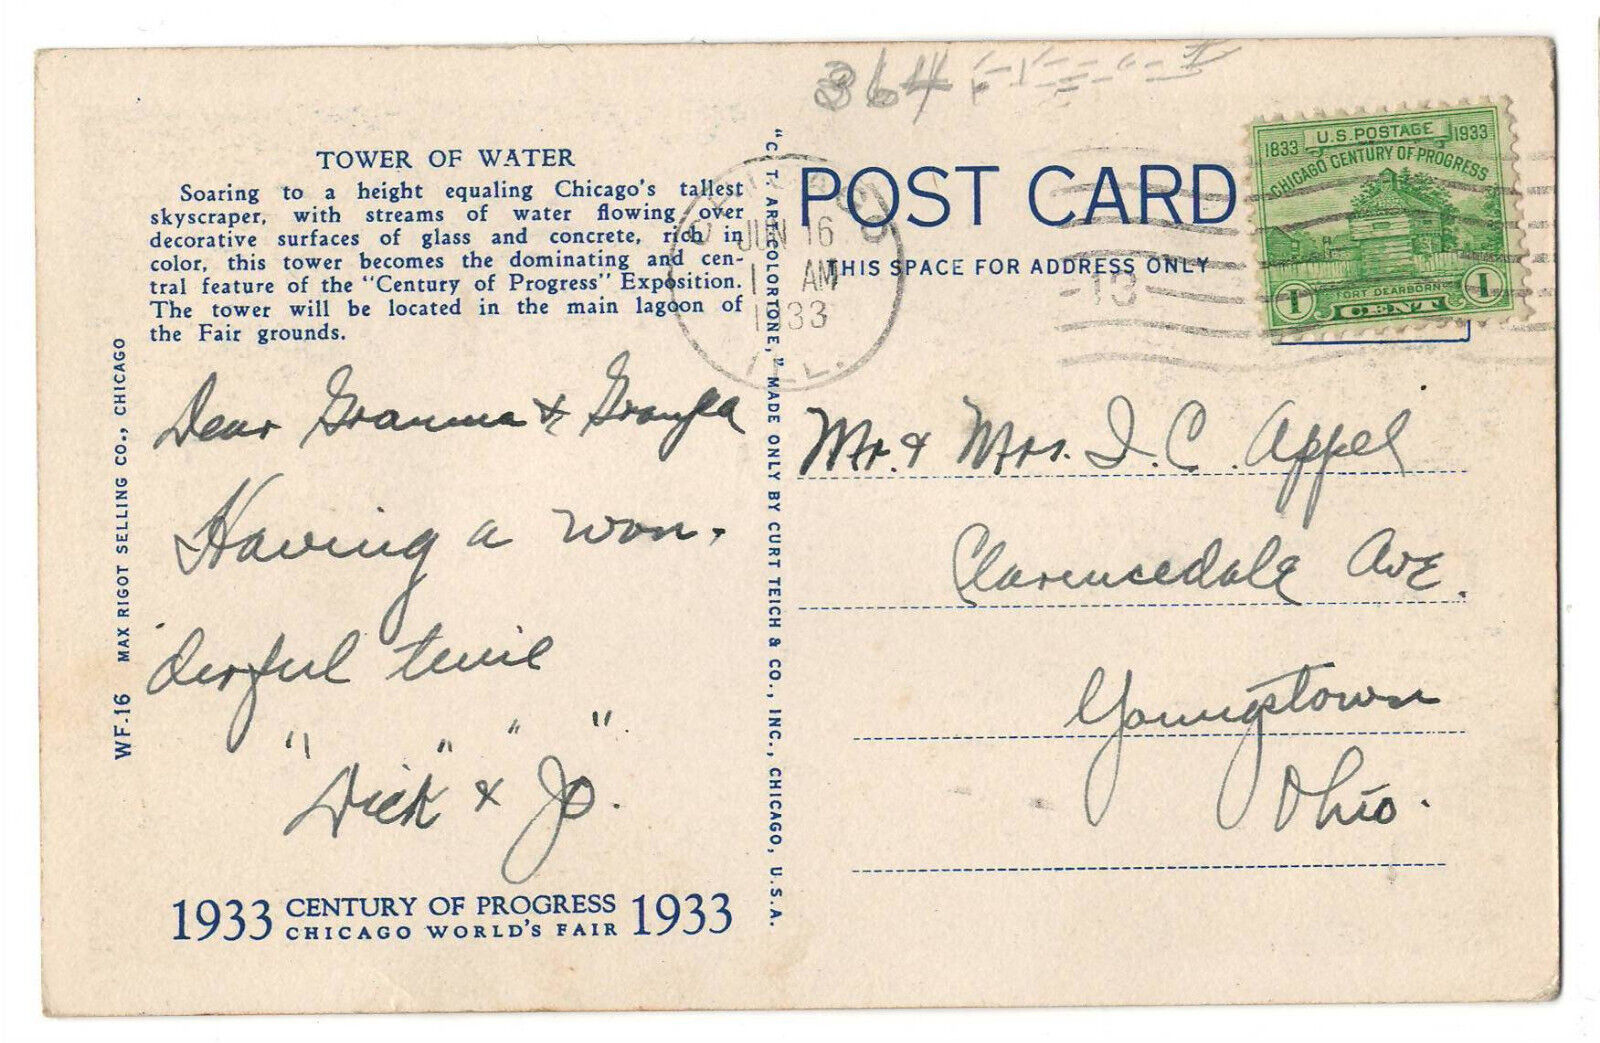 TOWER OF WATER
Soaring to a height equaling Chicago's tallest
skyscraper, with streams of water flowing over
decorative surfaces of glass and concrete, rich in
color, this tower becomes the dominating and cen-
tral feature of the "Century of Progress" Exposition.
The tower will be located in the main lagoon of
the Fair grounds.
Dear Gramma & Grampa
Having a won-
derful time
"Dick" & "Jo."
1933 CENTURY OF PROGRESS 1933
CHICAGO WORLD'S FAIR
WF-16 MAX RIGOT SELLING CO., CHICAGO
"C. T. ART-COLORTONE," MADE ONLY BY CURT TEICH & CO., INC., CHICAGO, U. S. A.
364
POST CARD
THIS SPACE FOR ADDRESS ONLY
CHICAGO
JUN 16
AM
1933
ILL.
U.S. POSTAGE
1833 1933
CHICAGO CENTURY OF PROGRESS
FORT DEARBORN
1 CENT 1
Mr. & Mrs. I. C. Appel
Clarencedale Ave.
Youngstown
Ohio.